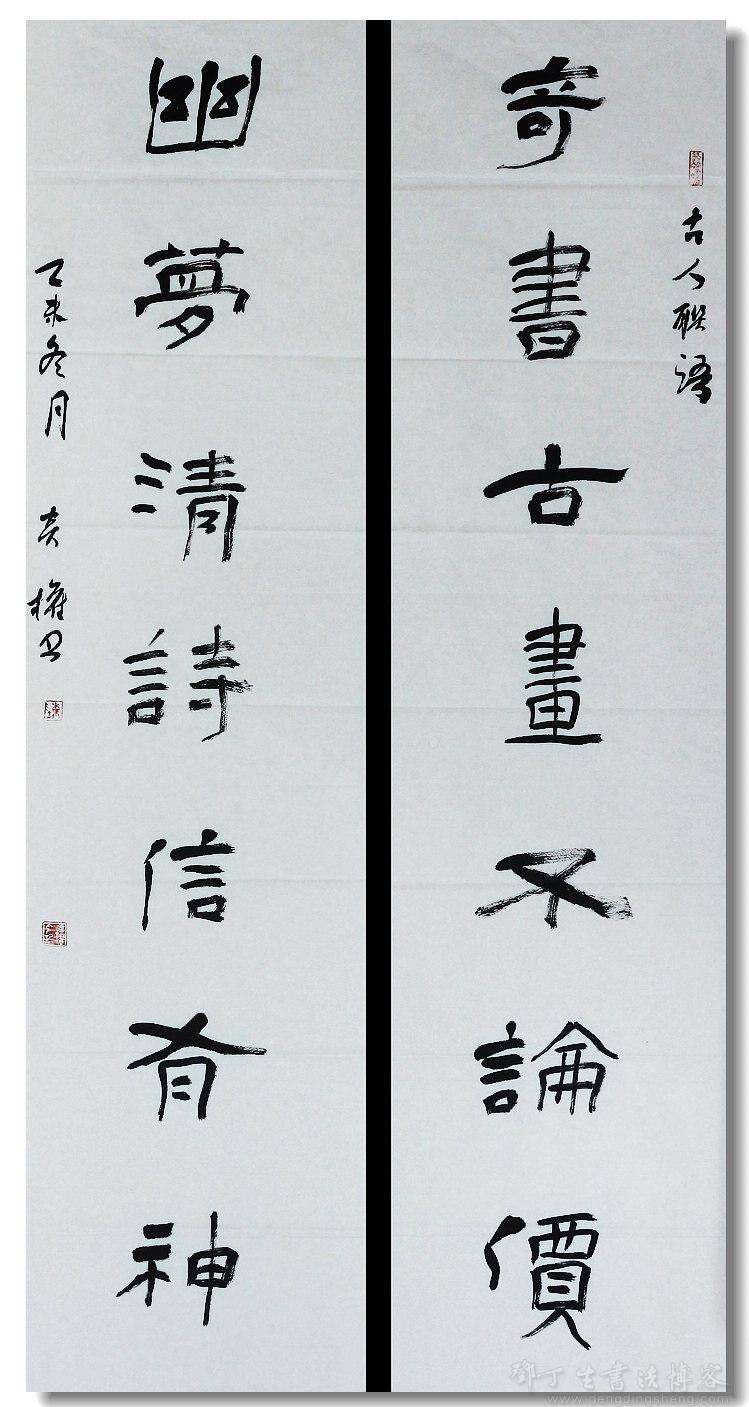 古人联语
奇書古畫不論價
幽夢清詩信有神
冬月
鄧丁生書法博客
www.dengdingsheng.com